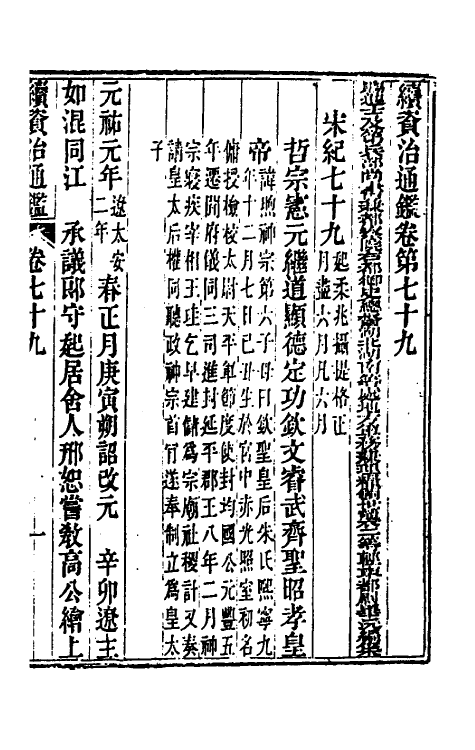 續資治通鑑卷第七十九
賜進士及第兵部尚書兼都察院右都御史總督湖北湖南等處地方軍務兼理糧餉世襲二等輕車都尉畢沅編集
宋紀七十九 起柔兆攝提格正
月盡六月凡六月
哲宗憲元繼道顯德定功欽文睿武齊聖昭孝皇
帝 諱煦神宗第六子母曰欽聖皇后朱氏熙寧九
年十二月七日己丑生於宮中赤光照室初名
傭授檢校太尉天平軍節度使封均國公元豐五
年遷開府儀同三司進封延平郡王八年二月神
宗寢疾宰相王珪乞早建儲爲宗廟社稷計又奏
請皇太后權同聽政神宗首肯遂奉制立爲皇太
子
元祐元年 遼太安二年 春正月庚寅朔詔改元 辛卯遼主
如混同江 承議郎守起居舍人邢恕嘗教高公繪上
續資治通鑑 卷七十九 一